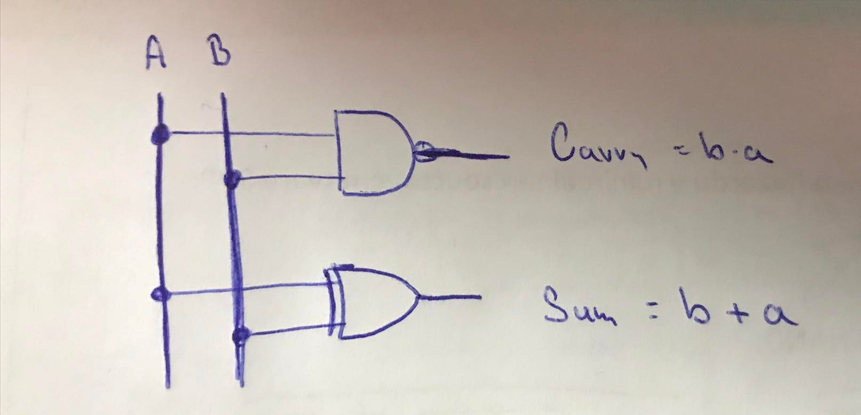 A B
Carry = b·a
Sum = b + a